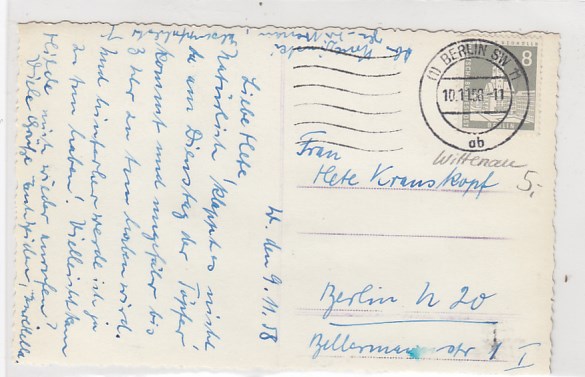 W. den 9.11.58
Liebe Hete!
Natürlich klappt es nicht
da am Dienstag der Töpfer
kommt und ungefähr bis
3 hier zu tun haben wird.
Und hinterher werde ich ja
zu tun haben! Vielleicht kann
Hilde mich wieder anrufen?
Viele Grüße auch
(1) BERLIN SW 11
10.11.58-11
ab
8
BERLIN
Wittenau
5,-
Frau
Hete Krauskopf
Berlin N 20
Bellermannstr 1
I